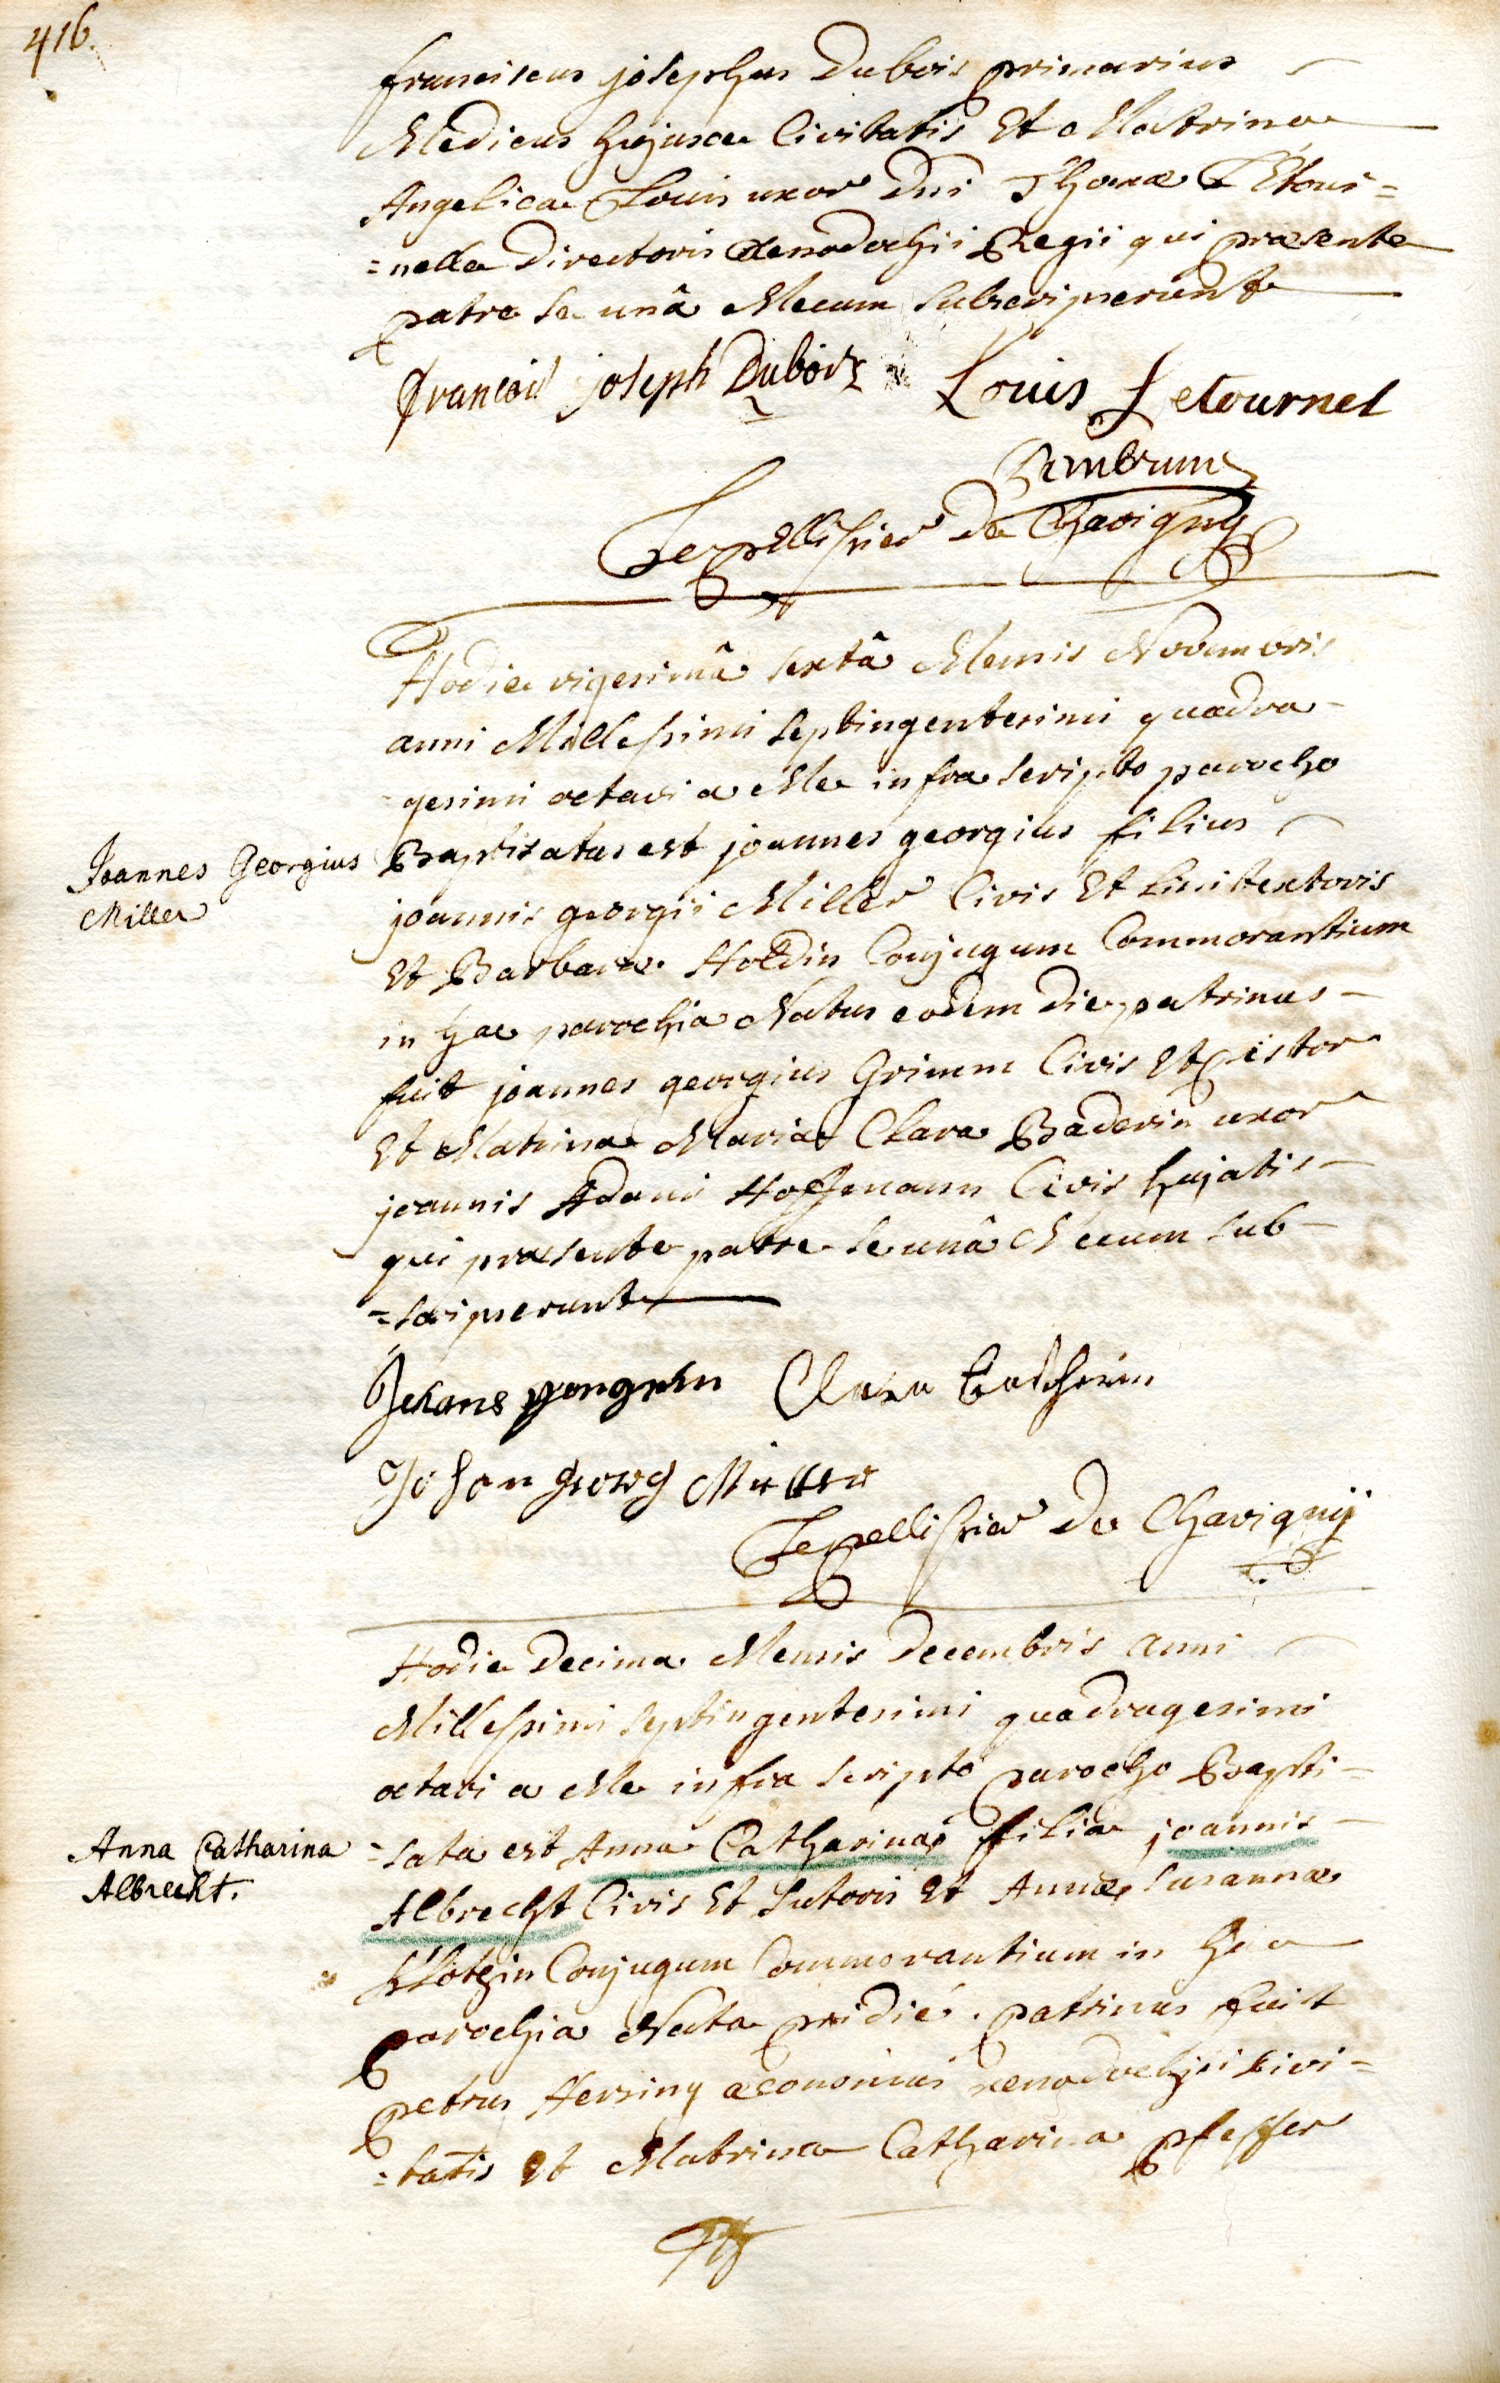 416.
franciscus josephus Dubois primarius
Medicus hujusce Civitatis Et Matrina
Angelica Louis uxor Dni Thomæ L'Etour=
=nelle Directoris Xenodochii Regii qui præsente
patre se unâ Mecum subscripserunt
François joseph Dubois Louis Letournel
Lepellissier De Chavigny
Hodie vigesimâ sextâ Mensis Novembris
anni Millessimi septingentesimi quadra-
gesimi octavi a Me infra scripto parocho
Joannes Georgius
Miller
Baptisatus est joannes georgius filius
joannis georgii Miller Civis Et Linitextoris
Et Barbaræ Hoëdin Conjugum Commorantium
in hac parochia Natus eodem die, patrinus-
fuit joannes georgius Grimm Civis Et pistor
Et Matrina Maria Clara Baderin uxor
joannis Adami Hoffmann Civis hujatis-
qui præsente patre se unâ Mecum sub-
=scripserunt
Clara
Johan Georg Müller
Lepellissier De Chavignÿ
Hodie Decima Mensis Decembris anni
Millessimi septingentesimi quadragesimi
octavi a Me infra scripto parocho Bapti=
Anna Catharina
Albrecht.
=sata est Anna Catharina filia joannis-
Albrecht Civis Et Sutoris Et Annæ Susannæ
Klotzin Conjugum Commorantium in hac
parochia Nata pridie. patrinus fuit
petrus Hersing œconomus xenodochii Civi=
=tatis Et Matrina Catharina pfeffer